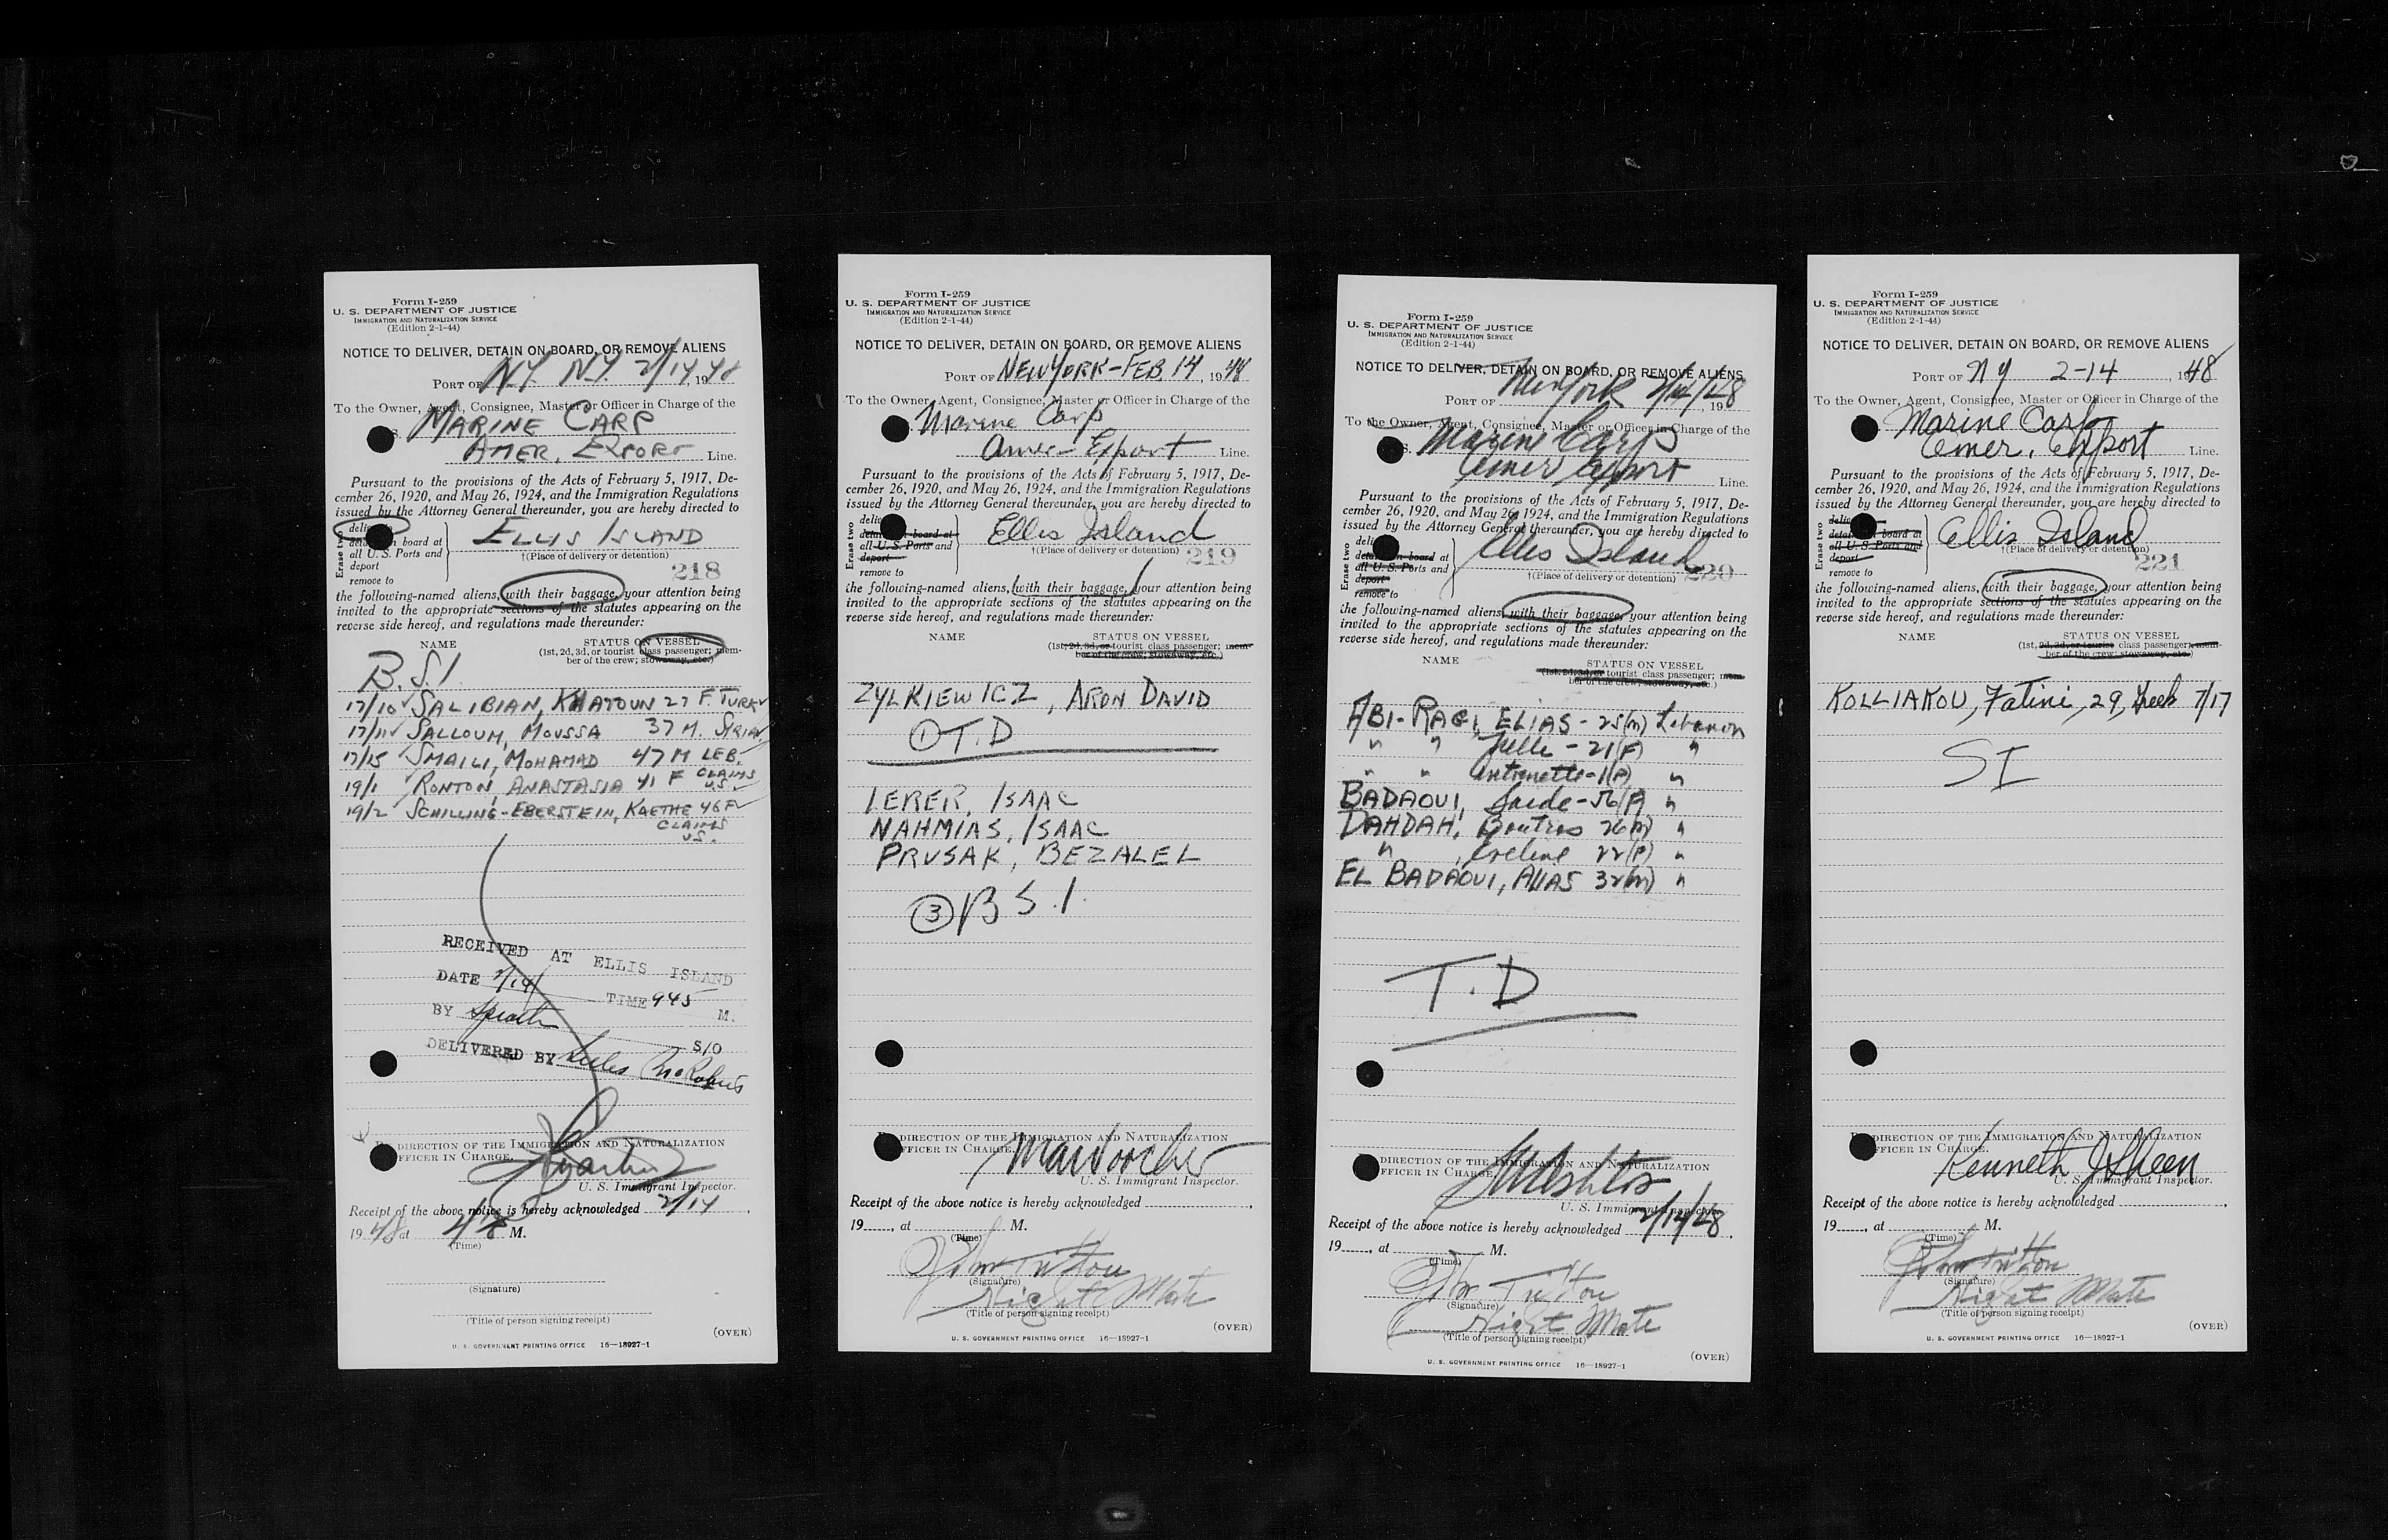 Form I-259
U. S. DEPARTMENT OF JUSTICE
IMMIGRATION AND NATURALIZATION SERVICE
(Edition 2-1-44)
NOTICE TO DELIVER, DETAIN ON BOARD, OR REMOVE ALIENS
PORT OF N.Y. N.Y. 2/14, 1948
To the Owner, Agent, Consignee, Master or Officer in Charge of the
MARINE CARP
AMER. EXPORT Line.
Pursuant to the provisions of the Acts of February 5, 1917, De-
cember 26, 1920, and May 26, 1924, and the Immigration Regulations
issued by the Attorney General thereunder, you are hereby directed to
Erase two
board at
all U. S. Ports and
deport
remove to
ELLIS ISLAND
†(Place of delivery or detention)
218
the following-named aliens, with their baggage, your attention being
invited to the appropriate sections of the statutes appearing on the
reverse side hereof, and regulations made thereunder:
NAME STATUS ON VESSEL
(1st, 2d, 3d, or tourist class passenger; mem-
ber of the crew; stowaway, etc.)
B.S.I.
17/10 SALIBIAN, KHATOUN 27 F. TURK
17/11 SALLOUM, MOUSSA 37 M. SYRIA
17/15 SMAILI, MOHAMAD 47 M LEB.
19/1 RONTON, ANASTASIA 41 F CLAIMS
U.S.
19/2 SCHILLING-EBERSTEIN, KAETHE 46 F
CLAIMS
U.S.
RECEIVED AT ELLIS ISLAND
DATE 2/14 TIME 945 M.
BY
S/O
DELIVERED BY
DIRECTION OF THE IMMIGRATION AND NATURALIZATION
OFFICER IN CHARGE.
U. S. Immigrant Inspector.
Receipt of the above notice is hereby acknowledged 2/14,
1948 at 48 M.
(Time)
(Signature)
(Title of person signing receipt)
(OVER)
U. S. GOVERNMENT PRINTING OFFICE 16—18927-1
Form I-259
U. S. DEPARTMENT OF JUSTICE
IMMIGRATION AND NATURALIZATION SERVICE
(Edition 2-1-44)
NOTICE TO DELIVER, DETAIN ON BOARD, OR REMOVE ALIENS
PORT OF NEW YORK - FEB. 14, 1948
To the Owner, Agent, Consignee, Master or Officer in Charge of the
Marine Carp
Amer- Export Line.
Pursuant to the provisions of the Acts of February 5, 1917, De-
cember 26, 1920, and May 26, 1924, and the Immigration Regulations
issued by the Attorney General thereunder, you are hereby directed to
Erase two
board at
all U. S. Ports and
deport
remove to
Ellis Island
†(Place of delivery or detention)
219
the following-named aliens, with their baggage, your attention being
invited to the appropriate sections of the statutes appearing on the
reverse side hereof, and regulations made thereunder:
NAME STATUS ON VESSEL
(1st, 2d, 3d, or tourist class passenger; mem-
ber of the crew; stowaway, etc.)
ZYLKIEWICZ, ARON DAVID
① T.D
LERER, ISAAC
NAHMIAS, ISAAC
PRUSAK, BEZALEL
③ B S.I.
DIRECTION OF THE IMMIGRATION AND NATURALIZATION
OFFICER IN CHARGE.
U. S. Immigrant Inspector.
Receipt of the above notice is hereby acknowledged
19 , at M.
(Time)
(Signature)
Night Mate
(Title of person signing receipt)
(OVER)
U. S. GOVERNMENT PRINTING OFFICE 16—18927-1
Form I-259
U. S. DEPARTMENT OF JUSTICE
IMMIGRATION AND NATURALIZATION SERVICE
(Edition 2-1-44)
NOTICE TO DELIVER, DETAIN ON BOARD, OR REMOVE ALIENS
PORT OF New York 2/14/48, 19
To the Owner, Agent, Consignee, Master or Officer in Charge of the
Marine Carp
Amer Export Line.
Pursuant to the provisions of the Acts of February 5, 1917, De-
cember 26, 1920, and May 26, 1924, and the Immigration Regulations
issued by the Attorney General thereunder, you are hereby directed to
Erase two
on board at
all U. S. Ports and
deport
remove to
Ellis Island
†(Place of delivery or detention)
220
the following-named aliens, with their baggage, your attention being
invited to the appropriate sections of the statutes appearing on the
reverse side hereof, and regulations made thereunder:
NAME STATUS ON VESSEL
(1st, 2d, 3d, or tourist class passenger; mem-
ber of the crew; stowaway, etc.)
ABI-RAGI, ELIAS - 25(M) Lebanon
" " Julie - 21(F) "
" " Antoinette - 1(F) "
BADAOUI, Saide - 56(F) "
DAHDAH, Boutros 26(M) "
" , Eveline 22(F) "
EL BADAOUI, 32(M) "
T.D
DIRECTION OF THE IMMIGRATION AND NATURALIZATION
OFFICER IN CHARGE.
U. S. Immigrant Inspector.
Receipt of the above notice is hereby acknowledged 2/14/48,
19 , at M.
(Time)
(Signature)
Night Mate
(Title of person signing receipt)
(OVER)
U. S. GOVERNMENT PRINTING OFFICE 16—18927-1
Form I-259
U. S. DEPARTMENT OF JUSTICE
IMMIGRATION AND NATURALIZATION SERVICE
(Edition 2-1-44)
NOTICE TO DELIVER, DETAIN ON BOARD, OR REMOVE ALIENS
PORT OF NY 2-14, 1948
To the Owner, Agent, Consignee, Master or Officer in Charge of the
Marine Carp
Amer. Export Line.
Pursuant to the provisions of the Acts of February 5, 1917, De-
cember 26, 1920, and May 26, 1924, and the Immigration Regulations
issued by the Attorney General thereunder, you are hereby directed to
Erase two
board at
all U. S. Ports and
deport
remove to
Ellis Island
†(Place of delivery or detention)
221
the following-named aliens, with their baggage, your attention being
invited to the appropriate sections of the statutes appearing on the
reverse side hereof, and regulations made thereunder:
NAME STATUS ON VESSEL
(1st, 2d, 3d, or tourist class passenger; mem-
ber of the crew; stowaway, etc.)
KOLLIAKOU, Fatini, 29, Greek 7/17
SI
DIRECTION OF THE IMMIGRATION AND NATURALIZATION
OFFICER IN CHARGE.
Kenneth J Sheen
U. S. Immigrant Inspector.
Receipt of the above notice is hereby acknowledged
19 , at M.
(Time)
(Signature)
Night Mate
(Title of person signing receipt)
(OVER)
U. S. GOVERNMENT PRINTING OFFICE 16—18927-1